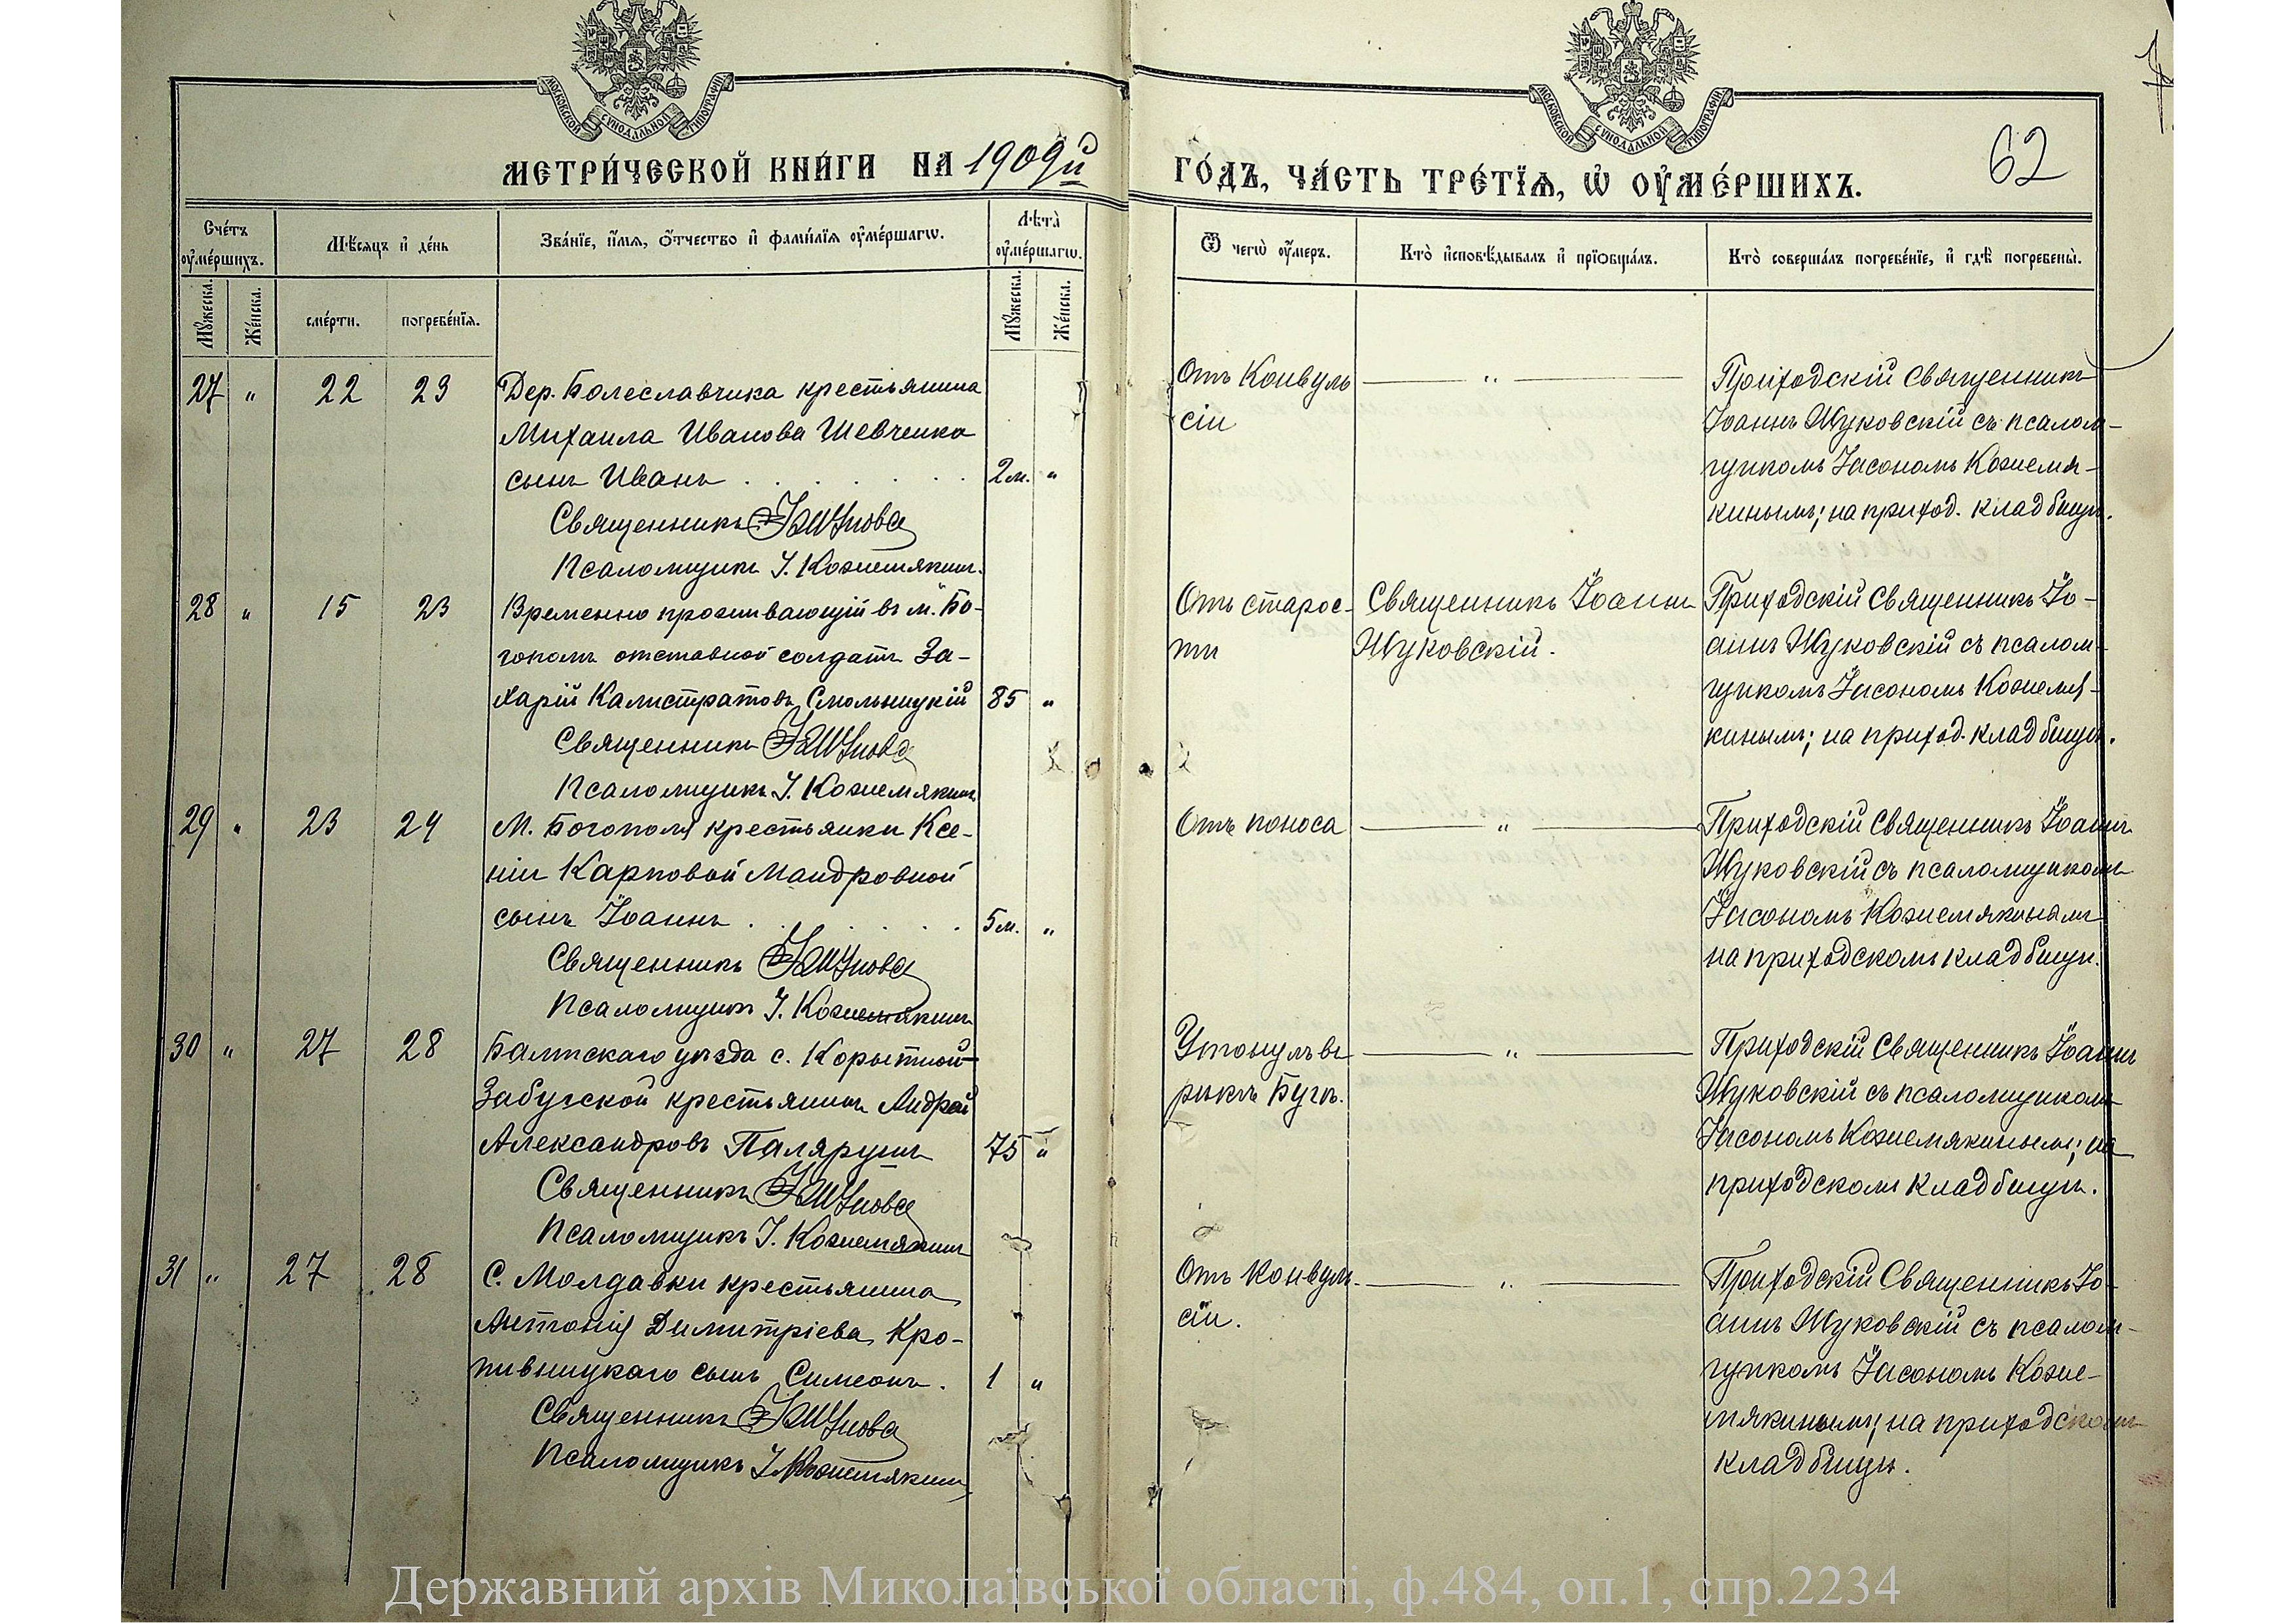 МОСКОВСКОЙ СѴНОДАЛЬНОЙ ТИПОГРАФІИ
МОСКОВСКОЙ СѴНОДАЛЬНОЙ ТИПОГРАФІИ
62
МЕТРИ́ЧЕСКОЙ КНИ́ГИ НА 1909й ГО́ДЪ, ЧА́СТЬ ТРЕ́ТЇѦ, Ѡ ОУ҆МЕ́РШИХЪ.
Сче́тъ оу҆ме́ршихъ.
Мѣ́сѧцъ и҆ де́нь
Зва́нїе, и҆́мѧ, ѻ҆́тчество и҆ фами́лїѧ оу҆ме́ршагѡ.
Лѣ́та оу҆ме́ршагѡ.
Ѿ чегѡ̀ оу҆́меръ.
Кто̀ и҆сповѣ́дывалъ и҆ прїѡбща́лъ.
Кто̀ соверша́лъ погребе́нїе, и҆ гдѣ̀ погребены̀.
Мꙋ́жеска.
Же́нска.
сме́рти.
погребе́нїѧ.
Мꙋ́жеска.
Же́нска.
27 " 22 23
Дер. Болеславчика крестьянина
Михаила Иванова Шевченко
сынъ Иванъ . . . . . . 2 м. "
Священникъ
Псаломщикъ І. Кожемякинъ.
Отъ Конвуль
сіи
— " —
Приходскій Священникъ
Іоаннъ Жуковскій съ псалом-
щикомъ Іасономъ Кожемя-
кинымъ; на приход. кладбищѣ.
28 " 15 23
Временно проживающій въ м. Бо-
гополѣ отставной солдатъ За-
харій Калистратовъ Смольницкій 85 "
Священникъ
Псаломщикъ І. Кожемякинъ
Отъ старос-
ти
Священникъ Іоаннъ
Жуковскій.
Приходскій Священникъ Іо-
аннъ Жуковскій съ псалом-
щикомъ Іасономъ Кожемя-
кинымъ; на приход. кладбищѣ.
29 " 23 24
М. Богополя крестьянки Ксе-
ніи Карповой Мандровной
сынъ Іоаннъ . . . . . . 5 м. "
Священникъ
Псаломщикъ І. Кожемякинъ
Отъ поноса
— " —
Приходскій Священникъ Іоаннъ
Жуковскій съ псаломщикомъ
Іасономъ Кожемякинымъ
на приходскомъ кладбищѣ.
30 " 27 28
Балтскаго уѣзда с. Корытной
Забугской крестьянинъ Андрей
Александровъ Паляруш 75 "
Священникъ
Псаломщикъ І. Кожемякинъ
Утонулъ въ
рѣкѣ Бугѣ.
— " —
Приходскій Священникъ Іоаннъ
Жуковскій съ псаломщикомъ
Іасономъ Кожемякинымъ; на
приходскомъ кладбищѣ.
31 " 27 28
С. Молдавки крестьянина
Антонія Димитріева Кро-
пивницкаго сынъ Симеонъ. 1 "
Священникъ
Псаломщикъ І. Кожемякинъ
Отъ конвуль-
сіи.
— " —
Приходскій Священникъ Іо-
аннъ Жуковскій съ псалом-
щикомъ Іасономъ Коже-
мякинымъ; на приходскомъ
кладбищѣ.
Державний архів Миколаївської області, ф.484, оп.1, спр.2234